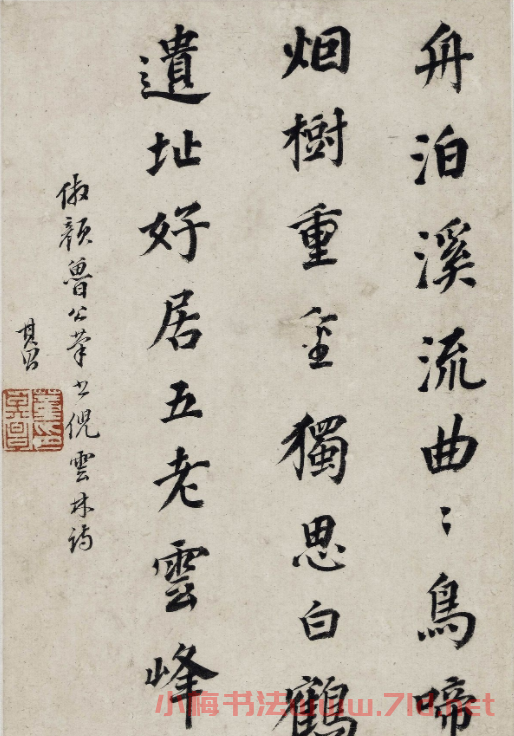 舟泊溪流曲〻鳥啼
烟樹重重獨思白鶴
遺址好居五老雲峰
倣顏魯公筆書倪雲林詩
其昌
小梅书法www.7ld.net